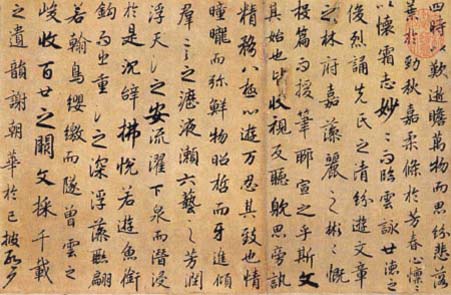 四時以歎逝瞻萬物而思紛悲落
葉於勁秋嘉柔條於芳春心懍〻
以懷霜志妙〻而臨雲詠世德之
俊烈誦先民之清紛遊文章
之林府嘉藻麗之彬〻慨
投篇而援筆聊宣之乎斯文
其始也皆收視反聽躭思旁訊
精務八極心遊万忍其致也情
曈曨而弥鮮物昭晢而互進傾
羣言之瀝液漱六藝之芳潤
浮天淵之安流濯下泉而潛浸
於是沉辞怫悦若遊魚銜
鈎而出重淵之深浮藻聯翩
若翰鳥纓繳而墜曾雲之
峻收百世之闕文採千載
之遺韻謝朝華於已披啟夕